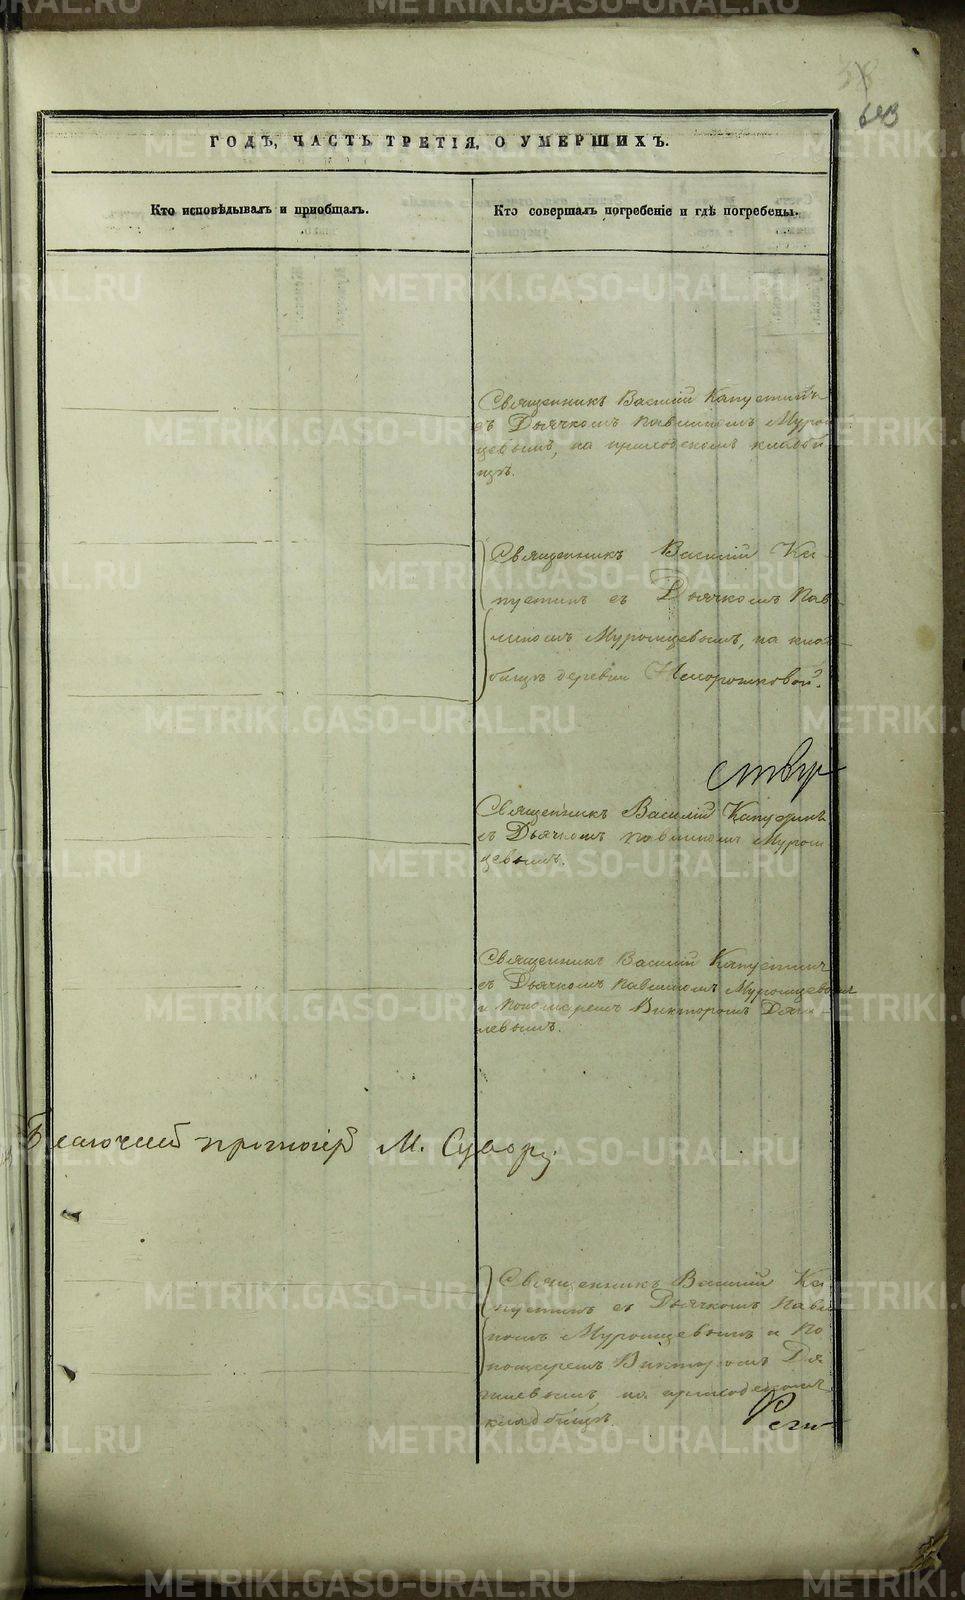 643
ГОДЪ, ЧАСТЬ ТРЕТІЯ, О УМЕРШИХЪ.
Кто исповѣдывалъ и пріобщалъ.
Кто совершалъ погребеніе и гдѣ погребены.
Священникъ Василій Капустинъ
съ Дьячкомъ Павлиномъ Муром
цевымъ, на приходскомъ кладби
щѣ.
Священникъ Василій Ка-
пустинъ съ Дьячкомъ Пав
линомъ Муромцевымъ, на клад-
бищѣ деревни
Священникъ Василій Капустинъ
съ Дьячкомъ Павлиномъ Муром
цевымъ.
Священникъ Василій Капустинъ
съ Дьячкомъ Павлиномъ Муромцевымъ
и Пономаремъ Викторомъ Дяги-
левымъ.
Благочинный протоіерей М.
Священникъ Василій Ка
пустинъ съ Дьячкомъ Павли
номъ Муромцевымъ и По
номаремъ Викторомъ Дя
гилевымъ на приходскомъ
кладбищѣ.
METRIKI.GASO-URAL.RU